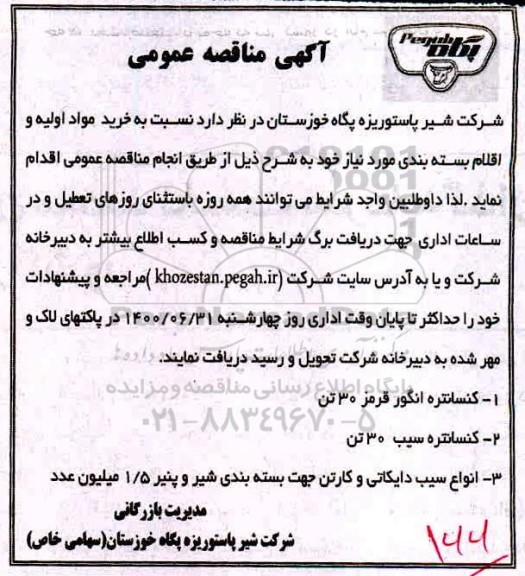 Pegah
پگاه
آگهی مناقصه عمومی
شرکت شیر پاستوریزه پگاه خوزستان در نظر دارد نسبت به خرید مواد اولیه و
اقلام بسته بندی مورد نیاز خود به شرح ذیل از طریق انجام مناقصه عمومی اقدام
نماید .لذا داوطلبین واجد شرایط می توانند همه روزه باستثنای روزهای تعطیل و در
ساعات اداری جهت دریافت برگ شرایط مناقصه و کسب اطلاع بیشتر به دبیرخانه
شرکت و یا به آدرس سایت شرکت (khozestan.pegah.ir )مراجعه و پیشنهادات
خود را حداکثر تا پایان وقت اداری روز چهارشنبه ۱۴۰۰/۰۶/۳۱ در پاکتهای لاک و
مهر شده به دبیرخانه شرکت تحویل و رسید دریافت نمایند.
پایگاه اطلاع رسانی مناقصه و مزایده
۱- کنسانتره انگور قرمز ۳۰ تن
۰۲۱-۸۸۳۴۹۶۷۰-۵
۲- کنسانتره سیب ۳۰ تن
۳- انواع سیب دایکاتی و کارتن جهت بسته بندی شیر و پنیر ۱/۵ میلیون عدد
مدیریت بازرگانی
شرکت شیر پاستوریزه پگاه خوزستان(سهامی خاص)
۱۴۴